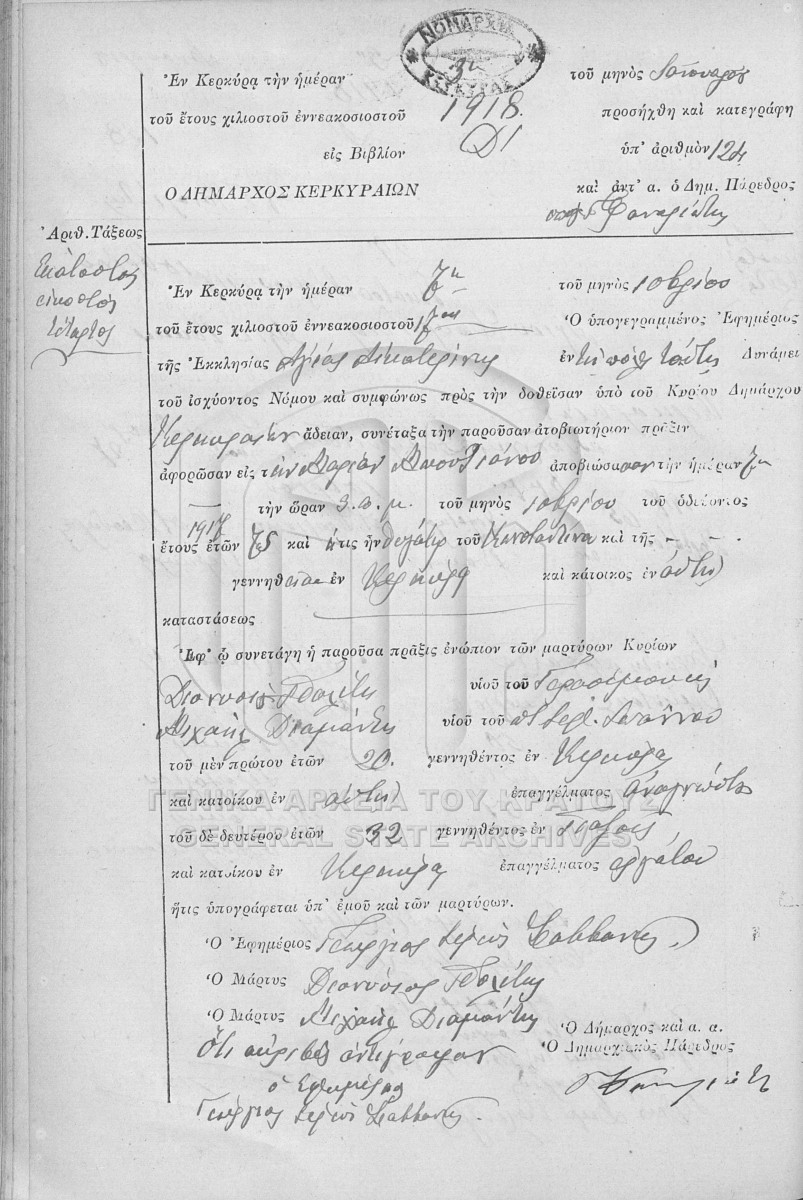 ΝΟΜΑΡΧΙΑ
ΚΕΡΚΥΡΑΣ
Ἐν Κερκύρᾳ τὴν ἡμέραν 3η τοῦ μηνὸς
τοῦ ἔτους χιλιοστοῦ ἐννεακοσιοστοῦ 1918. προσήχθη καὶ κατεγράφη
εἰς Βιβλίον Δ1 ὑπ' ἀριθμὸν 124
Ο ΔΗΜΑΡΧΟΣ ΚΕΡΚΥΡΑΙΩΝ καὶ ἀντ' α. ὁ Δημ. Πάρεδρος
Φαναριώτης
Ἀριθ. Τάξεως
Εκατοστὸς
εἰκοστὸς
τέταρτος
Ἐν Κερκύρᾳ τὴν ἡμέραν 7η τοῦ μηνὸς 10βρίου
τοῦ ἔτους χιλιοστοῦ ἐννεακοσιοστοῦ 17ου Ὁ ὑπογεγραμμένος Ἐφημέριος
τῆς Ἐκκλησίας Αγίας Αικατερίνης ἐν τῇ πόλει ταύτῃ Δυνάμει
τοῦ ἰσχύοντος Νόμου καὶ συμφώνως πρὸς τὴν δοθεῖσαν ὑπὸ τοῦ Κυρίου Δημάρχου
Κερκυραίων ἄδειαν, συνέταξα τὴν παροῦσαν ἀποβιωτήριον πρᾶξιν
ἀφορῶσαν εἰς τὴν Μαρίαν ἀποβιώσασαν τὴν ἡμέραν 7η
τὴν ὥραν 3. α. μ. τοῦ μηνὸς 10βρίου τοῦ ὁδεύοντος
1917
ἔτους ἐτῶν 75 καὶ ἥτις ἦν θυγάτηρ τοῦ Κωνσταντίνου καὶ τῆς - - .
γεννηθεῖσα ἐν Κερκύρᾳ καὶ κάτοικος ἐν αὐτῇ
καταστάσεως
Ἐφ' ᾧ συνετάγη ἡ παροῦσα πρᾶξις ἐνώπιον τῶν μαρτύρων Κυρίων
Διονυσίου υἱοῦ τοῦ
Μιχαὴλ Διαμάντη υἱοῦ τοῦ Ιωάννου
τοῦ μὲν πρώτου ἐτῶν 20. γεννηθέντος ἐν Κερκύρᾳ
καὶ κατοίκου ἐν αὐτῇ ἐπαγγέλματος ἀναγνώστου
τοῦ δὲ δευτέρου ἐτῶν 32 γεννηθέντος ἐν Παξοῖς
καὶ κατοίκου ἐν Κερκύρᾳ ἐπαγγέλματος ἐργάτου
ἥτις ὑπογράφεται ὑπ' ἐμοῦ καὶ τῶν μαρτύρων.
Ὁ Ἐφημέριος Γεώργιος Ιερεὺς
Ὁ Μάρτυς Διονύσιος
Ὁ Μάρτυς Μιχαὴλ Διαμάντης
Ὁ Δήμαρχος καὶ α. α.
Ὅτι ἀκριβὲς ἀντίγραφον Ὁ Δημαρχιακὸς Πάρεδρος
ὁ Εφημέριος
Γεώργιος Ιερεὺς
ΓΕΝΙΚΑ ΑΡΧΕΙΑ ΤΟΥ ΚΡΑΤΟΥΣ
GENERAL STATE ARCHIVES